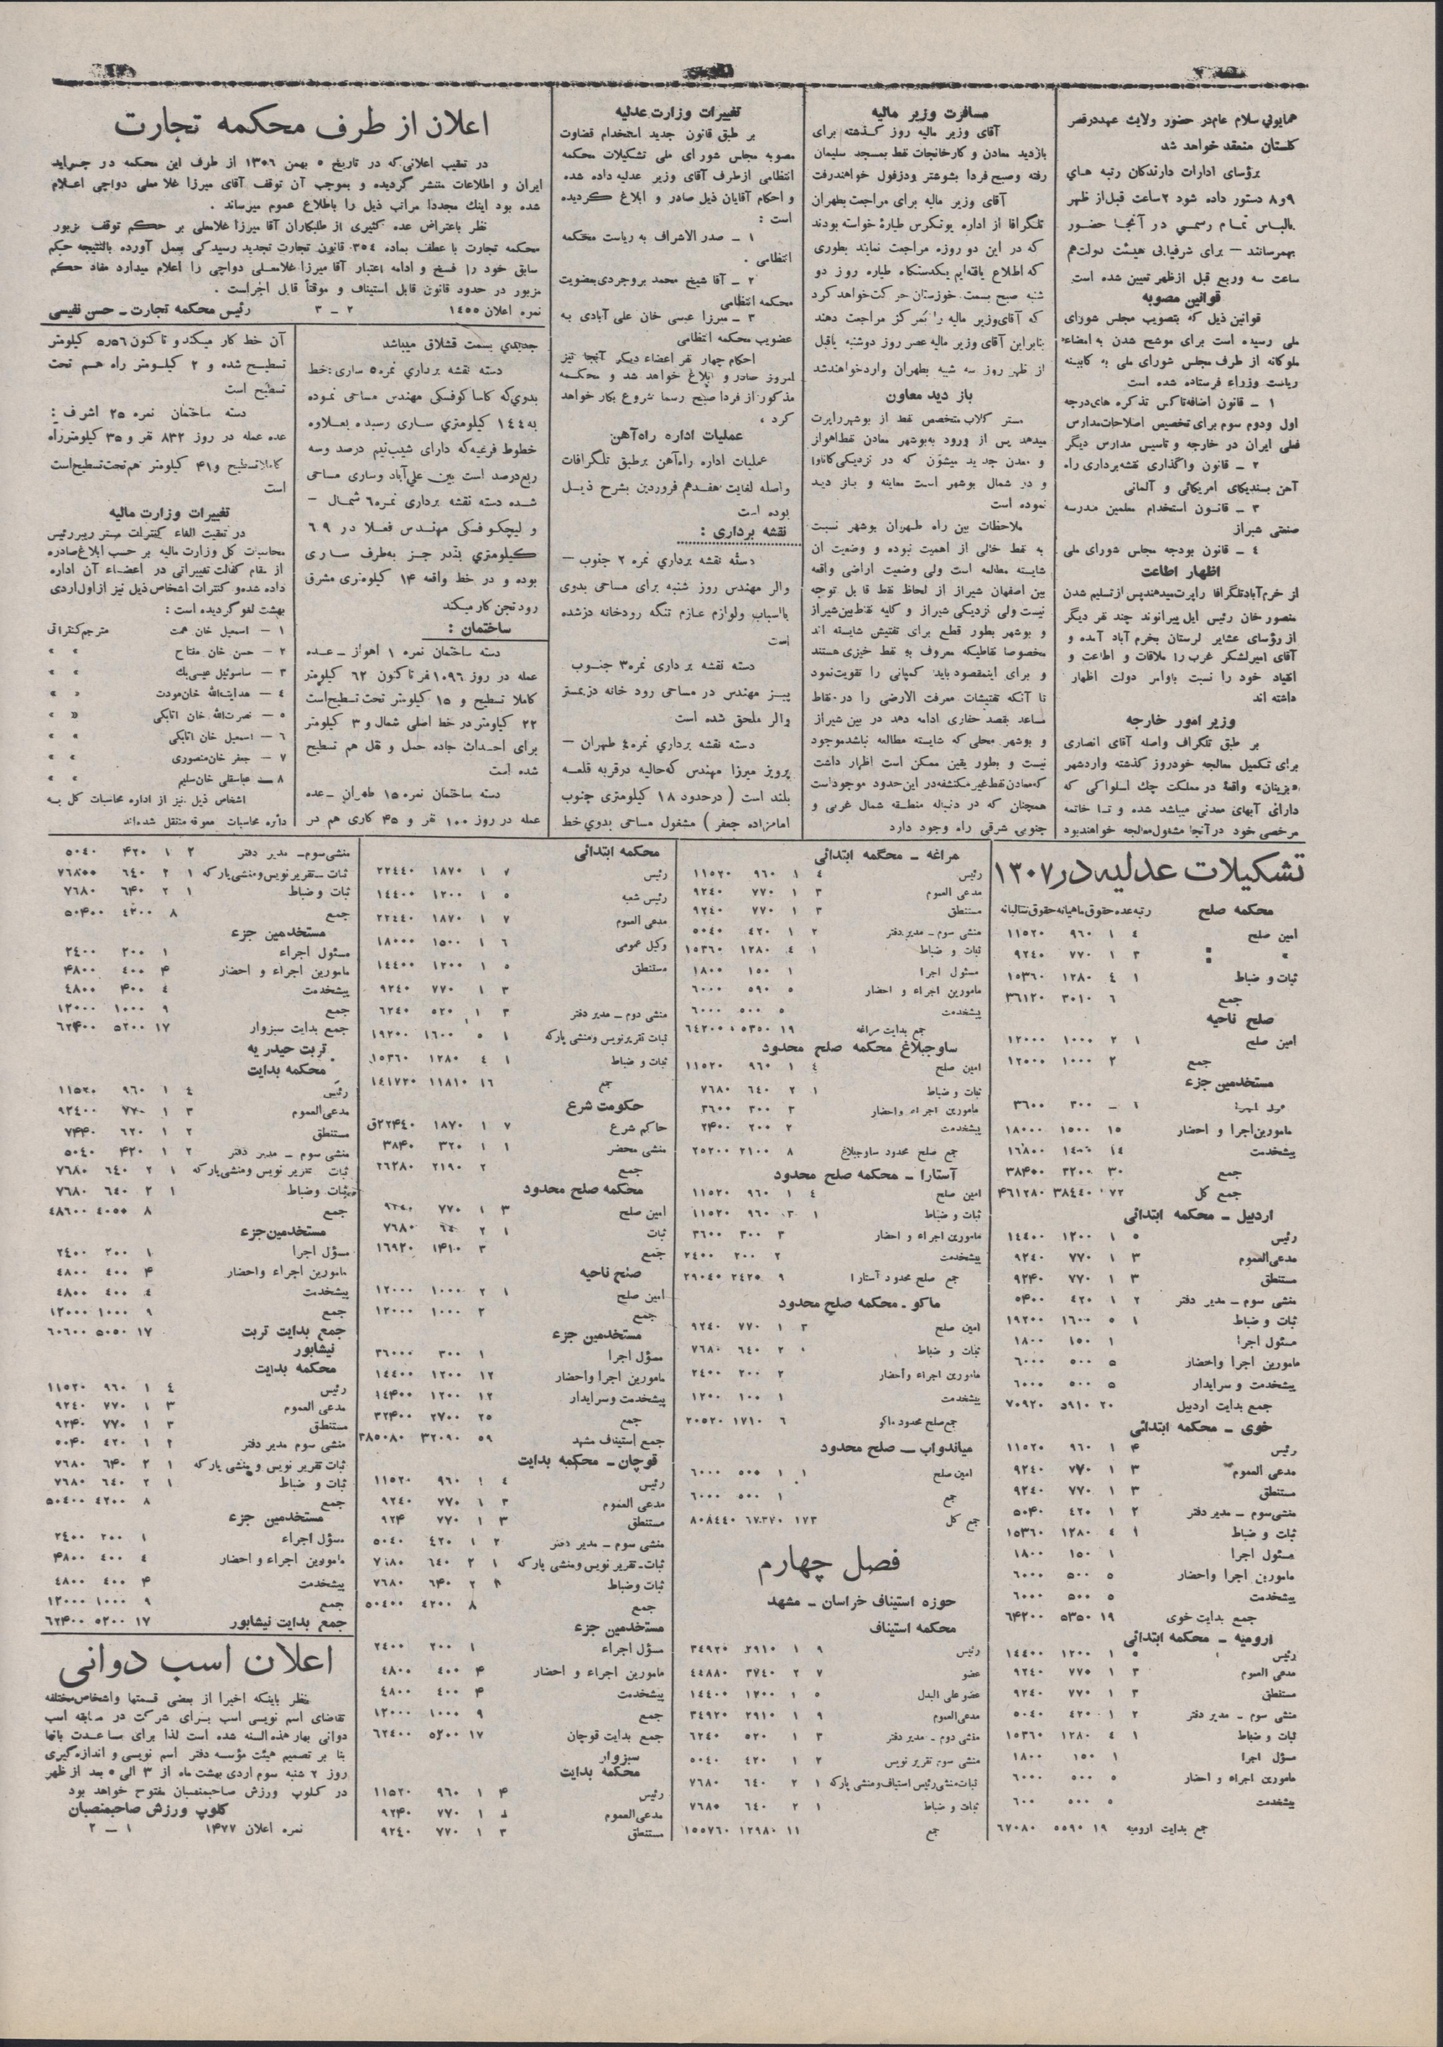 همایونی سلام عام در حضور ولایت عهد در قصر
گلستان منعقد خواهد شد
برؤسای ادارات دارندگان رتبه های
۹و۸ دستور داده شود ۲ساعت قبل از ظهر
بالباس تمام رسمی در آنجا حضور
بهمرسانند — برای شرفیابی هیئت دولت هم
ساعت سه وربع قبل ازظهر تعیین شده است
قوانین مصوبه
قوانین ذیل که بتصویب مجلس شورای
ملی رسیده است برای موشح شدن به امضاء
ملوکانه از طرف مجلس شورای ملی به کابینه
ریاست وزراء فرستاده شده است
۱ – قانون اضافه تاکس تذکره های درجه
اول ودوم سوم برای تخصیص اصلاحات مدارس
فعلی ایران در خارجه و تاسیس مدارس دیگر
۲ – قانون واگذاری نقشه برداری راه
آهن بسندیکای امریکائی و آلمانی
۳ – قانون استخدام معلمین مدرسه
صنعتی شیراز
٤ – قانون بودجه مجلس شورای ملی
اظهار اطاعت
از خرم آباد تلگرافا راپرت میدهند پس از تسلیم شدن
منصور خان رئیس ایل پیرانوند چند نفر دیگر
از رؤسای عشایر لرستان بخرم آباد آمده و
آقای امیر لشکر غرب را ملاقات و اطاعت و
انقیاد خود را نسبت باوامر دولت اظهار
داشته اند
وزیر امور خارجه
بر طبق تلگراف واصله آقای انصاری
برای تکمیل معالجه خود روز گذشته وارد شهر
«پزینان» واقعهٔ در مملکت چک اسلواکی که
دارای آبهای معدنی میباشد شده و تا خاتمه
مرخصی خود در آنجا مشغول معالجه خواهند بود
مسافرت وزیر مالیه
آقای وزیر مالیه روز گذشته برای
بازدید معادن و کارخانجات نفط بمسجد سلیمان
رفته وصبح فردا بشوشتر ودزفول خواهند رفت
آقای وزیر مالیه برای مراجعت بطهران
تلگرافا از اداره یونکرس طیاره خواسته بودند
که در این دو روزه مراجعت نمایند بطوری
که اطلاع یافته ایم یکدستگاه طیاره روز دو
شنبه صبح بسمت خوزستان حرکت خواهد کرد
که آقای وزیر مالیه را بمرکز مراجعت دهند
بنابراین آقای وزیر مالیه عصر روز دوشنبه یاقبل
از ظهر روز سه شنبه بطهران وارد خواهند شد
باز دید معاون
مستر کلاب متخصص نفط از بوشهر راپرت
میدهد پس از ورود به بوشهر معادن نفط اهواز
و معدن جدید میشون که در نزدیکی کاناوا
و در شمال بوشهر است معاینه و باز دید
نموده است
ملاحظات بین راه طهران بوشهر نسبت
به نفط خالی از اهمیت نبوده و وضعیت آن
شایسته مطالعه است ولی وضعیت اراضی واقعه
بین اصفهان شیراز از لحاظ نفط قابل توجه
نیست ولی نزدیکی شیراز و کلیه نقاط بین شیراز
و بوشهر بطور قطع برای تفتیش شایسته اند
مخصوصا نقاطیکه معروف به نفط خیزی هستند
و برای اینمقصود باید کمپانی را تقویت نمود
تا آنکه تفتیشات معرفت الارضی را در نقاط
مساعد بقصد حفاری ادامه دهد در بین شیراز
و بوشهر محلی که شایسته مطالعه نباشد موجود
نیست و بطور یقین ممکن است اظهار داشت
که معادن نفط غیر مکتشفه در این حدود موجود است
همچنان که در دنباله منطقه شمال غربی و
جنوبی شرقی راه وجود دارد
تغییرات وزارت عدلیه
بر طبق قانون جدید استخدام قضاوت
مصوبه مجلس شورای ملی تشکیلات محکمه
انتظامی ازطرف آقای وزیر عدلیه داده شده
و احکام آقایان ذیل صادر و ابلاغ گردیده
است :
۱ – صدر الاشراف به ریاست محکمه
انتظامی .
۲ – آقا شیخ محمد بروجردی بعضویت
محکمه انتظامی
۳ – میرزا عیسی خان علی آبادی به
عضویت محکمه انتظامی
احکام چهار نفر اعضاء دیگر آنجا نیز
امروز صادر و ابلاغ خواهد شد و محکمه
مذکور از فردا صبح رسما شروع بکار خواهد
کرد .
عملیات اداره راه آهن
عملیات اداره راه آهن برطبق تلگرافات
واصله لغایت هفدهم فروردین بشرح ذیل
بوده است
نقشه برداری :
دسته نقشه برداری نمره ۲ جنوب –
والر مهندس روز شنبه برای مساحی بدوی
بااسباب ولوازم عازم تنگه رودخانه دزشده
است
دسته نقشه برداری نمره۳ جنوب
پییز مهندس در مساحی رود خانه دز بمستر
والر ملحق شده است
دسته نقشه برداری نمره٤ طهران –
پرویز میرزا مهندس که حالیه در قریه قلعه
بلند است ( در حدود ۱۸ کیلومتری جنوب
امامزاده جعفر ) مشغول مساحی بدوی خط
اعلان از طرف محکمه تجارت
در تعقیب اعلانی که در تاریخ ۵ بهمن ۱۳۵٦ از طرف این محکمه در جراید
ایران و اطلاعات منتشر گردیده و بموجب آن توقف آقای میرزا غلامعلی دواچی اعلام
شده بود اینک مجددا مراتب ذیل را باطلاع عموم میرساند .
نظر باعتراض عده کثیری از طلبکاران آقا میرزا غلامعلی بر حکم توقف مزبور
محکمه تجارت با عطف بماده ۳٥٤ قانون تجارت تجدید رسیدگی بعمل آورده بالنتیجه حکم
سابق خود را فسخ و ادامه اعتبار آقا میرزا غلامعلی دواچی را اعلام میدارد مفاد حکم
مزبور در حدود قانون قابل استیناف و موقتاً قابل اجراست .
نمره اعلان ۱٤٥٥ ۲ – ۳ رئیس محکمه تجارت – حسن نفیسی
جدیدی بسمت قشلاق میباشد
دسته نقشه برداری نمره ٥ ساری : خط
بدوی که کاساکوفسکی مهندس مساحی نموده
به ۱٤٤ کیلومتری ساری رسیده بعلاوه
خطوط فرعیه که دارای شیب نیم درصد وسه
ربع درصد است بین علی آباد وساری مساحی
شده دسته نقشه برداری نمره ٦ شمال –
و لیچکوفسکی مهندس فعلا در ٦۹
کیلومتری بندر جز به طرف ساری
بوده و در خط واقعه ۱۴ کیلومتری مشرق
رود نجن کار میکند
ساختمان :
دسته ساختمان نمره ۱ اهواز – عده
عمله در روز ۱۰۹٦ نفر تاکنون ٦۲ کیلومتر
کاملا تسطیح و ۱۵ کیلومتر تحت تسطیح است
۲۲ کیلومتر در خط اصلی شمال و ۳ کیلومتر
برای احداث جاده حمل و نقل هم تسطیح
شده است
دسته ساختمان نمره ۱٥ طهران – عده
عمله در روز ۱۰۰ نفر و ۴۵ گاری هم در
آن خط کار میکند و تا کنون ٥ر٥٦ کیلومتر
تسطیح شده و ۲ کیلومتر راه هم تحت
تسطیح است
دسته ساختمان نمره ۲۵ اشرف :
عده عمله در روز ۸۳۲ نفر و ۳۵ کیلومتر راه
کاملا تسطیح و ۴۱ کیلومتر هم تحت تسطیح است
است
تغییرات وزارت مالیه
در تعقیب الغاء کنترات مستر رییر رئیس
محاسبات کل وزارت مالیه بر حسب ابلاغ صادره
از مقام کفالت تغییراتی در اعضاء آن اداره
داده شده و کنترات اشخاص ذیل نیز از اول اردی
بهشت لغو گردیده است :
۱ – اسمعیل خان همت مترجم کنتراتی
۲ – حسن خان مفتاح » »
۳ – ساموئیل عیسی بك » »
٤ – هدایت الله خان مودت » »
٥ – نصرت الله خان اتابکی » »
٦ – اسمعیل خان اتابکی » »
۷ – جعفر خان منصوری » »
۸ – عباسقلی خان سلیم » »
اشخاص ذیل نیز از اداره محاسبات کل به
دائره محاسبات معوقه منتقل شده اند
تشکیلات عدلیه در ۱۳۰۷
محکمه صلح رتبه عده حقوق ماهیانه حقوق سالیانه
امین صلح ٤ ۱ ۹٦۰ ۱۱٥۲۰
» ۳ ۱ ۷۷۰ ۹۲٤۰
ثبات و ضباط ۱ ٤ ۱۲۸۰ ۱٥۳٦۰
جمع ٦ ۳۰۱۰ ۳٦۱۲۰
صلح ناحیه
امین صلح ۱ ۲ ۱۰۰۰ ۱۲۰۰۰
جمع ۲ ۱۰۰۰ ۱۲۰۰۰
مستخدمین جزء
۱ – ۳۰۰ ۳٦۰۰
مامورین اجرا و احضار ۱٥ ۱٥۰۰ ۱۸۰۰۰
پیشخدمت ۱٤ ۱٤۰۰ ۱٦۸۰۰
جمع ۳۰ ۳۲۰۰ ۳۸٤۰۰
جمع کل ۷۲ ۳۸٤٤۰ ٤٦۱۲۸۰
اردبیل – محکمه ابتدائی
رئیس ٥ ۱ ۱۲۰۰ ۱٤٤۰۰
مدعی العموم ۳ ۱ ۷۷۰ ۹۲٤۰
مستنطق ۳ ۱ ۷۷۰ ۹۲٤۰
منشی سوم – مدیر دفتر ۲ ۱ ٤۲۰ ٥٤۰۰
ثبات و ضباط ۱ ٥ ۱٦۰۰ ۱۹۲۰۰
مسئول اجرا ۱ ۱٥۰ ۱۸۰۰
مامورین اجرا واحضار ٥ ٥۰۰ ٦۰۰۰
پیشخدمت و سرایدار ٥ ٥۰۰ ٦۰۰۰
جمع بدایت اردبیل ۲۰ ٥۹۱۰ ۷۰۹۲۰
خوی – محکمه ابتدائی
رئیس ۴ ۱ ۹٦۰ ۱۱٥۲۰
مدعی العموم ۳ ۱ ۷۷۰ ۹۲٤۰
مستنطق ۳ ۱ ۷۷۰ ۹۲٤۰
منشی سوم – مدیر دفتر ۲ ۱ ٤۲۰ ٥۰٤۰
ثبات و ضباط ۱ ٤ ۱۲۸۰ ۱٥۳٦۰
مسئول اجرا ۱ ۱٥۰ ۱۸۰۰
مامورین اجرا واحضار ٥ ٥۰۰ ٦۰۰۰
پیشخدمت ٥ ٥۰۰ ٦۰۰۰
جمع بدایت خوی ۱۹ ٥۳٥۰ ٦٤۲۰۰
ارومیه – محکمه ابتدائی
رئیس ٥ ۱ ۱۲۰۰ ۱٤٤۰۰
مدعی العموم ۳ ۱ ۷۷۰ ۹۲٤۰
مستنطق ۳ ۱ ۷۷۰ ۹۲٤۰
منشی سوم – مدیر دفتر ۲ ۱ ٤۲۰ ٥۰٤۰
ثبات و ضباط ۱ ٤ ۱۲۸۰ ۱٥۳٦۰
مسؤل اجرا ۱ ۱٥۰ ۱۸۰۰
مامورین اجراء و احضار ٥ ٥۰۰ ٦۰۰۰
پیشخدمت ٥ ٥۰۰ ٦۰۰
جمع بدایت ارومیه ۱۹ ٥٥۹۰ ٦۷۰۸۰
مراغه – محکمه ابتدائی
رئیس ٤ ۱ ۹٦۰ ۱۱٥۲۰
مدعی العموم ۳ ۱ ۷۷۰ ۹۲٤۰
مستنطق ۳ ۱ ۷۷۰ ۹۲٤۰
منشی سوم – مدیر دفتر ۲ ۱ ٤۲۰ ٥۰٤۰
ثبات و ضباط ۱ ٤ ۱۲۸۰ ۱٥۳٦۰
مسئول اجرا ۱ ۱٥۰ ۱۸۰۰
مامورین اجراء و احضار ٥ ٥۹۰ ٦۰۰۰
پیشخدمت ٥ ٥۰۰ ٦۰۰۰
جمع بدایت مراغه ۱۹ ٥۳٥۰ ٦٤۲۰۰
ساوجبلاغ محکمه صلح محدود
امین صلح ٤ ۱ ۹٦۰ ۱۱٥۲۰
ثبات و ضباط ۱ ۲ ٦٤۰ ۷٦۸۰
مامورین اجراء واحضار ۳ ۳۰۰ ۳٦۰۰
پیشخدمت ۲ ۲۰۰ ۲٤۰۰
جمع صلح محدود ساوجبلاغ ۸ ۲۱۰۰ ۲٥۲۰۰
آستارا – محکمه صلح محدود
امین صلح ٤ ۱ ۹٦۰ ۱۱٥۲۰
ثبات و ضباط ۱ ۳ ۹٦۰ ۱۱٥۲۰
مامورین اجراء و احضار ۳ ۳۰۰ ۳٦۰۰
پیشخدمت ۲ ۲۰۰ ۲٤۰۰
جمع صلح محدود آستارا ۹ ۲٤۲۰ ۲۹۰٤۰
ماکو – محکمه صلح محدود
امین صلح ۳ ۱ ۷۷۰ ۹۲٤۰
ثبات و ضباط ۰ ۲ ٦٤۰ ۷٦۸۰
مامورین اجراء واحضار ۲ ۲۰۰ ۲٤۰۰
پیشخدمت ۱ ۱۰۰ ۱۲۰۰
جمع صلح محدود ماکو ٦ ۱۷۱۰ ۲۰٥۲۰
میاندواب – صلح محدود
امین صلح ۱ ۱ ٥۰۰ ٦۰۰۰
جمع ۱ ٥۰۰ ٦۰۰۰
جمع کل ۱۷۳ ٦۷۳۷۰ ۸۰۸٤٤۰
فصل چهارم
حوزه استیناف خراسان – مشهد
محکمه استیناف
رئیس ۹ ۱ ۲۹۱۰ ۳٤۹۲۰
عضو ۷ ۲ ۳۷٤۰ ٤٤۸۸۰
عضو علی البدل ٥ ۱ ۱۲۰۰ ۱٤٤۰۰
مدعی العموم ۹ ۱ ۲۹۱۰ ۳٤۹۲۰
منشی دوم – مدیر دفتر ۳ ۱ ٥۲۰ ٦۲٤۰
منشی سوم تقریر نویس ۲ ۱ ٤۲۰ ٥۰٤۰
ثبات منشی رئیس استیناف ومنشی پارکه ۱ ۲ ٦٤۰ ۷٦۸۰
ثبات و ضباط ۱ ۲ ٦٤۰ ۷٦۸۰
جمع ۱۱ ۱۲۹۸۰ ۱٥٥۷٦۰
محکمه ابتدائی
رئیس ۷ ۱ ۱۸۷۰ ۲۲٤٤۰
رئیس شعبه ٥ ۱ ۱۲۰۰ ۱٤٤۰۰
مدعی العموم ۷ ۱ ۱۸۷۰ ۲۲٤٤۰
وکیل عمومی ٦ ۱ ۱٥۰۰ ۱۸۰۰۰
مستنطق ٥ ۱ ۱۲۰۰ ۱٤٤۰۰
۳ ۱ ۷۷۰ ۹۲٤۰
منشی دوم – مدیر دفتر ۳ ۱ ٥۲۰ ٦۲٤۰
ثبات تقریرنویس ومنشی پارکه ۱ ٥ ۱٦۰۰ ۱۹۲۰۰
ثبات و ضباط ۱ ٤ ۱۲۸۰ ۱٥۳٦۰
جمع ۱٦ ۱۱۸۱۰ ۱٤۱۷۲۰
حکومت شرع
حاکم شرع ۷ ۱ ۱۸۷۰ ۲۲٤٤۰ق
منشی محضر ۱ ۱ ۳۲۰ ۳۸٤۰
جمع ۲ ۲۱۹۰ ۲٦۲۸۰
محکمه صلح محدود
امین صلح ۳ ۱ ۷۷۰ ۹۲٤۰
ثبات ۱ ۲ ٦٤۰ ۷٦۸۰
جمع ۳ ۱٤۱۰ ۱٦۹۲۰
صلح ناحیه
امین صلح ۱ ۲ ۱۰۰۰ ۱۲۰۰۰
جمع ۲ ۱۰۰۰ ۱۲۰۰۰
مستخدمین جزء
مسؤل اجرا ۱ ۳۰۰ ۳٦۰۰۰
مامورین اجرا واحضار ۱۲ ۱۲۰۰ ۱٤٤۰۰
پیشخدمت وسرایدار ۱۲ ۱۲۰۰ ۱٤۴۰۰
جمع ۲٥ ۲۷۰۰ ۳۲٤۰۰
جمع استیناف مشهد ٥۹ ۳۲۰۹۰ ۳۸٥۰۸۰
قوچان – محکمه بدایت
رئیس ٤ ۱ ۹٦۰ ۱۱٥۲۰
مدعی العموم ۳ ۱ ۷۷۰ ۹۲٤۰
مستنطق ۳ ۱ ۷۷۰ ۹۲۴
منشی سوم – مدیر دفتر ۲ ۱ ٤۲۰ ٥۰٤۰
ثبات – تقریر نویس ومنشی پارکه ۱ ۲ ٦٤۰ ۷٦۸۰
ثبات وضباط ۱ ۲ ٦۴۰ ۷٦۸۰
جمع ۸ ٤۲۰۰ ٥۰٤۰۰
مستخدمین جزء
مسؤل اجراء ۱ ۲۰۰ ۲٤۰۰
مامورین اجراء و احضار ۴ ٤۰۰ ٤۸۰۰
پیشخدمت ۴ ٤۰۰ ٤۸۰۰
جمع ۹ ۱۰۰۰ ۱۲۰۰۰
جمع بدایت قوچان ۱۷ ٥۲۰۰ ٦۲٤۰۰
سبزوار
محکمه بدایت
رئیس ۴ ۱ ۹٦۰ ۱۱٥۲۰
مدعی العموم ۱ ۷۷۰ ۹۲۴۰
مستنطق ۳ ۱ ۷۷۰ ۹۲٤۰
منشی سوم – مدیر دفتر ۲ ۱ ٤۲۰ ٥۰٤۰
ثبات – تقریر نویس ومنشی پارکه ۱ ۲ ٦٤۰ ۷٦۸۰۰
ثبات وضباط ۱ ۲ ٦۴۰ ۷٦۸۰
جمع ۸ ٤۲۰۰ ٥۰۴۰۰
مستخدمین جزء
مسئول اجراء ۱ ۲۰۰ ۲٤۰۰
مامورین اجراء و احضار ۴ ٤۰۰ ٤۸۰۰
پیشخدمت ٤ ۴۰۰ ٤۸۰۰
جمع ۹ ۱۰۰۰ ۱۲۰۰۰
جمع بدایت سبزوار ۱۷ ٥۲۰۰ ٦۲۴۰۰
تربت حیدریه
محکمه بدایت
رئیس ٤ ۱ ۹٦۰ ۱۱٥۲۰
مدعی العموم ۳ ۱ ۷۷۰ ۹۲٤۰۰
مستنطق ۲ ۱ ٦۲۰ ۷۴۴۰
منشی سوم – مدیر دفتر ۲ ۱ ٤۲۰ ٥۰٤۰
ثبات تقریر نویس ومنشی پارکه ۱ ۲ ٦٤۰ ۷٦۸۰
ثبات وضباط ۱ ۲ ٦٤۰ ۷٦۸۰
جمع ۸ ٤۰٥۰ ٤۸٦۰۰
مستخدمین جزء
مسؤل اجرا ۱ ۲۰۰ ۲٤۰۰
مامورین اجراء واحضار ۴ ٤۰۰ ٤۸۰۰
پیشخدمت ٤ ٤۰۰ ٤۸۰۰
جمع ۹ ۱۰۰۰ ۱۲۰۰۰
جمع بدایت تربت ۱۷ ٥۰٥۰ ٦۰٦۰۰
نیشابور
محکمه بدایت
رئیس ٤ ۱ ۹٦۰ ۱۱٥۲۰
مدعی العموم ۳ ۱ ۷۷۰ ۹۲٤۰
مستنطق ۳ ۱ ۷۷۰ ۹۲۴۰
منشی سوم مدیر دفتر ۲ ۱ ٤۲۰ ٥۰۴۰
ثبات تقریر نویس و منشی پارکه ۱ ۲ ٦۴۰ ۷٦۸۰
ثبات و ضباط ۱ ۲ ٦٤۰ ۷٦۸۰
جمع ۸ ٤۲۰۰ ٥۰٤۰۰
مستخدمین جزء
مسؤل اجراء ۱ ۲۰۰ ۲٤۰۰
مامورین اجراء و احضار ٤ ٤۰۰ ۴۸۰۰
پیشخدمت ۴ ٤۰۰ ٤۸۰۰
جمع ۹ ۱۰۰۰ ۱۲۰۰۰
جمع بدایت نیشابور ۱۷ ٥۲۰۰ ٦۲٤۰۰
اعلان اسب دوانی
نظر باینکه اخیرا از بعضی قسمتها واشخاص مختلفه
تقاضای اسم نویسی اسب برای شرکت در مسابقه اسب
دوانی بهار هذه السنه شده است لذا برای مساعدت بآنها
بنا بر تصمیم هیئت مؤسسه دفتر اسم نویسی و اندازه گیری
روز ۲ شنبه سوم اردی بهشت ماه از ۳ الی ٥ بعد از ظهر
در کلوپ ورزش صاحبمنصبان مفتوح خواهد بود
کلوپ ورزش صاحبمنصبان
نمره اعلان ۱٤۷۷ ۱ – ۲